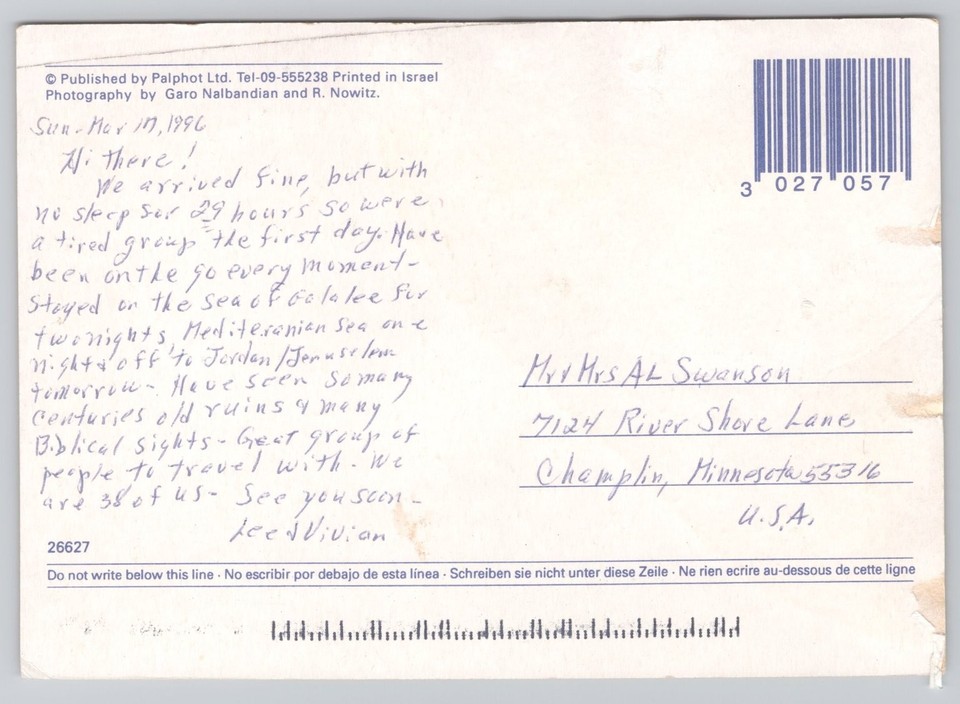 © Published by Palphot Ltd. Tel-09-555238 Printed in Israel
Photography by Garo Nalbandian and R. Nowitz.
3 027 057
Sun - Mar 17, 1996
Hi there!
We arrived fine, but with
no sleep for 29 hours so were
a tired group the first day. Have
been on the go every moment -
Stayed on the Sea of Galalee for
two nights, Mediteranian Sea one
night & off to Jordan/Jerusalem
tomorrow - Have seen so many
centuries old ruins & many
Biblical sights - Great group of
people to travel with - We
are 38 of us - See you soon -
Lee & Vivian
Mr & Mrs AL Swanson
7124 River Shore Lane
Champlin, Minnesota 55316
U.S.A.
26627
Do not write below this line · No escribir por debajo de esta línea · Schreiben sie nicht unter diese Zeile · Ne rien ecrire au-dessous de cette ligne